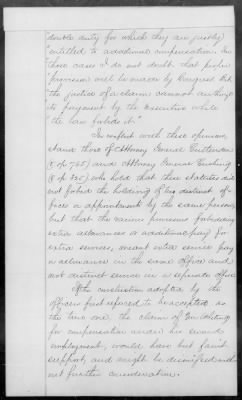 double duty for which they are justly
entitled to additional compensation. In
these cases I do not doubt that proper
provision will be made by Congress But
the justice of a claim cannot authorize
its payment by the Executive while
the law forbids it."
In conflict with these opinions
stand those of Attorney General Crittenden
(5 op 765) and Attorney General Cushing
(8 op 325) who hold that these statutes did
not forbid the holding of two distinct of-
fices or appointments by the same person,
but that the various provisions forbidding
extra allowances or additional pay for
extra services, meant extra service pay
or allowance in the same office and
not distinct service in a separate office
If the conclusion adopted by the
officers first referred to be accepted as
the true one, the claim of
for compensation under his second
employment, would have but faint
support, and might be dismissed without
further consideration.